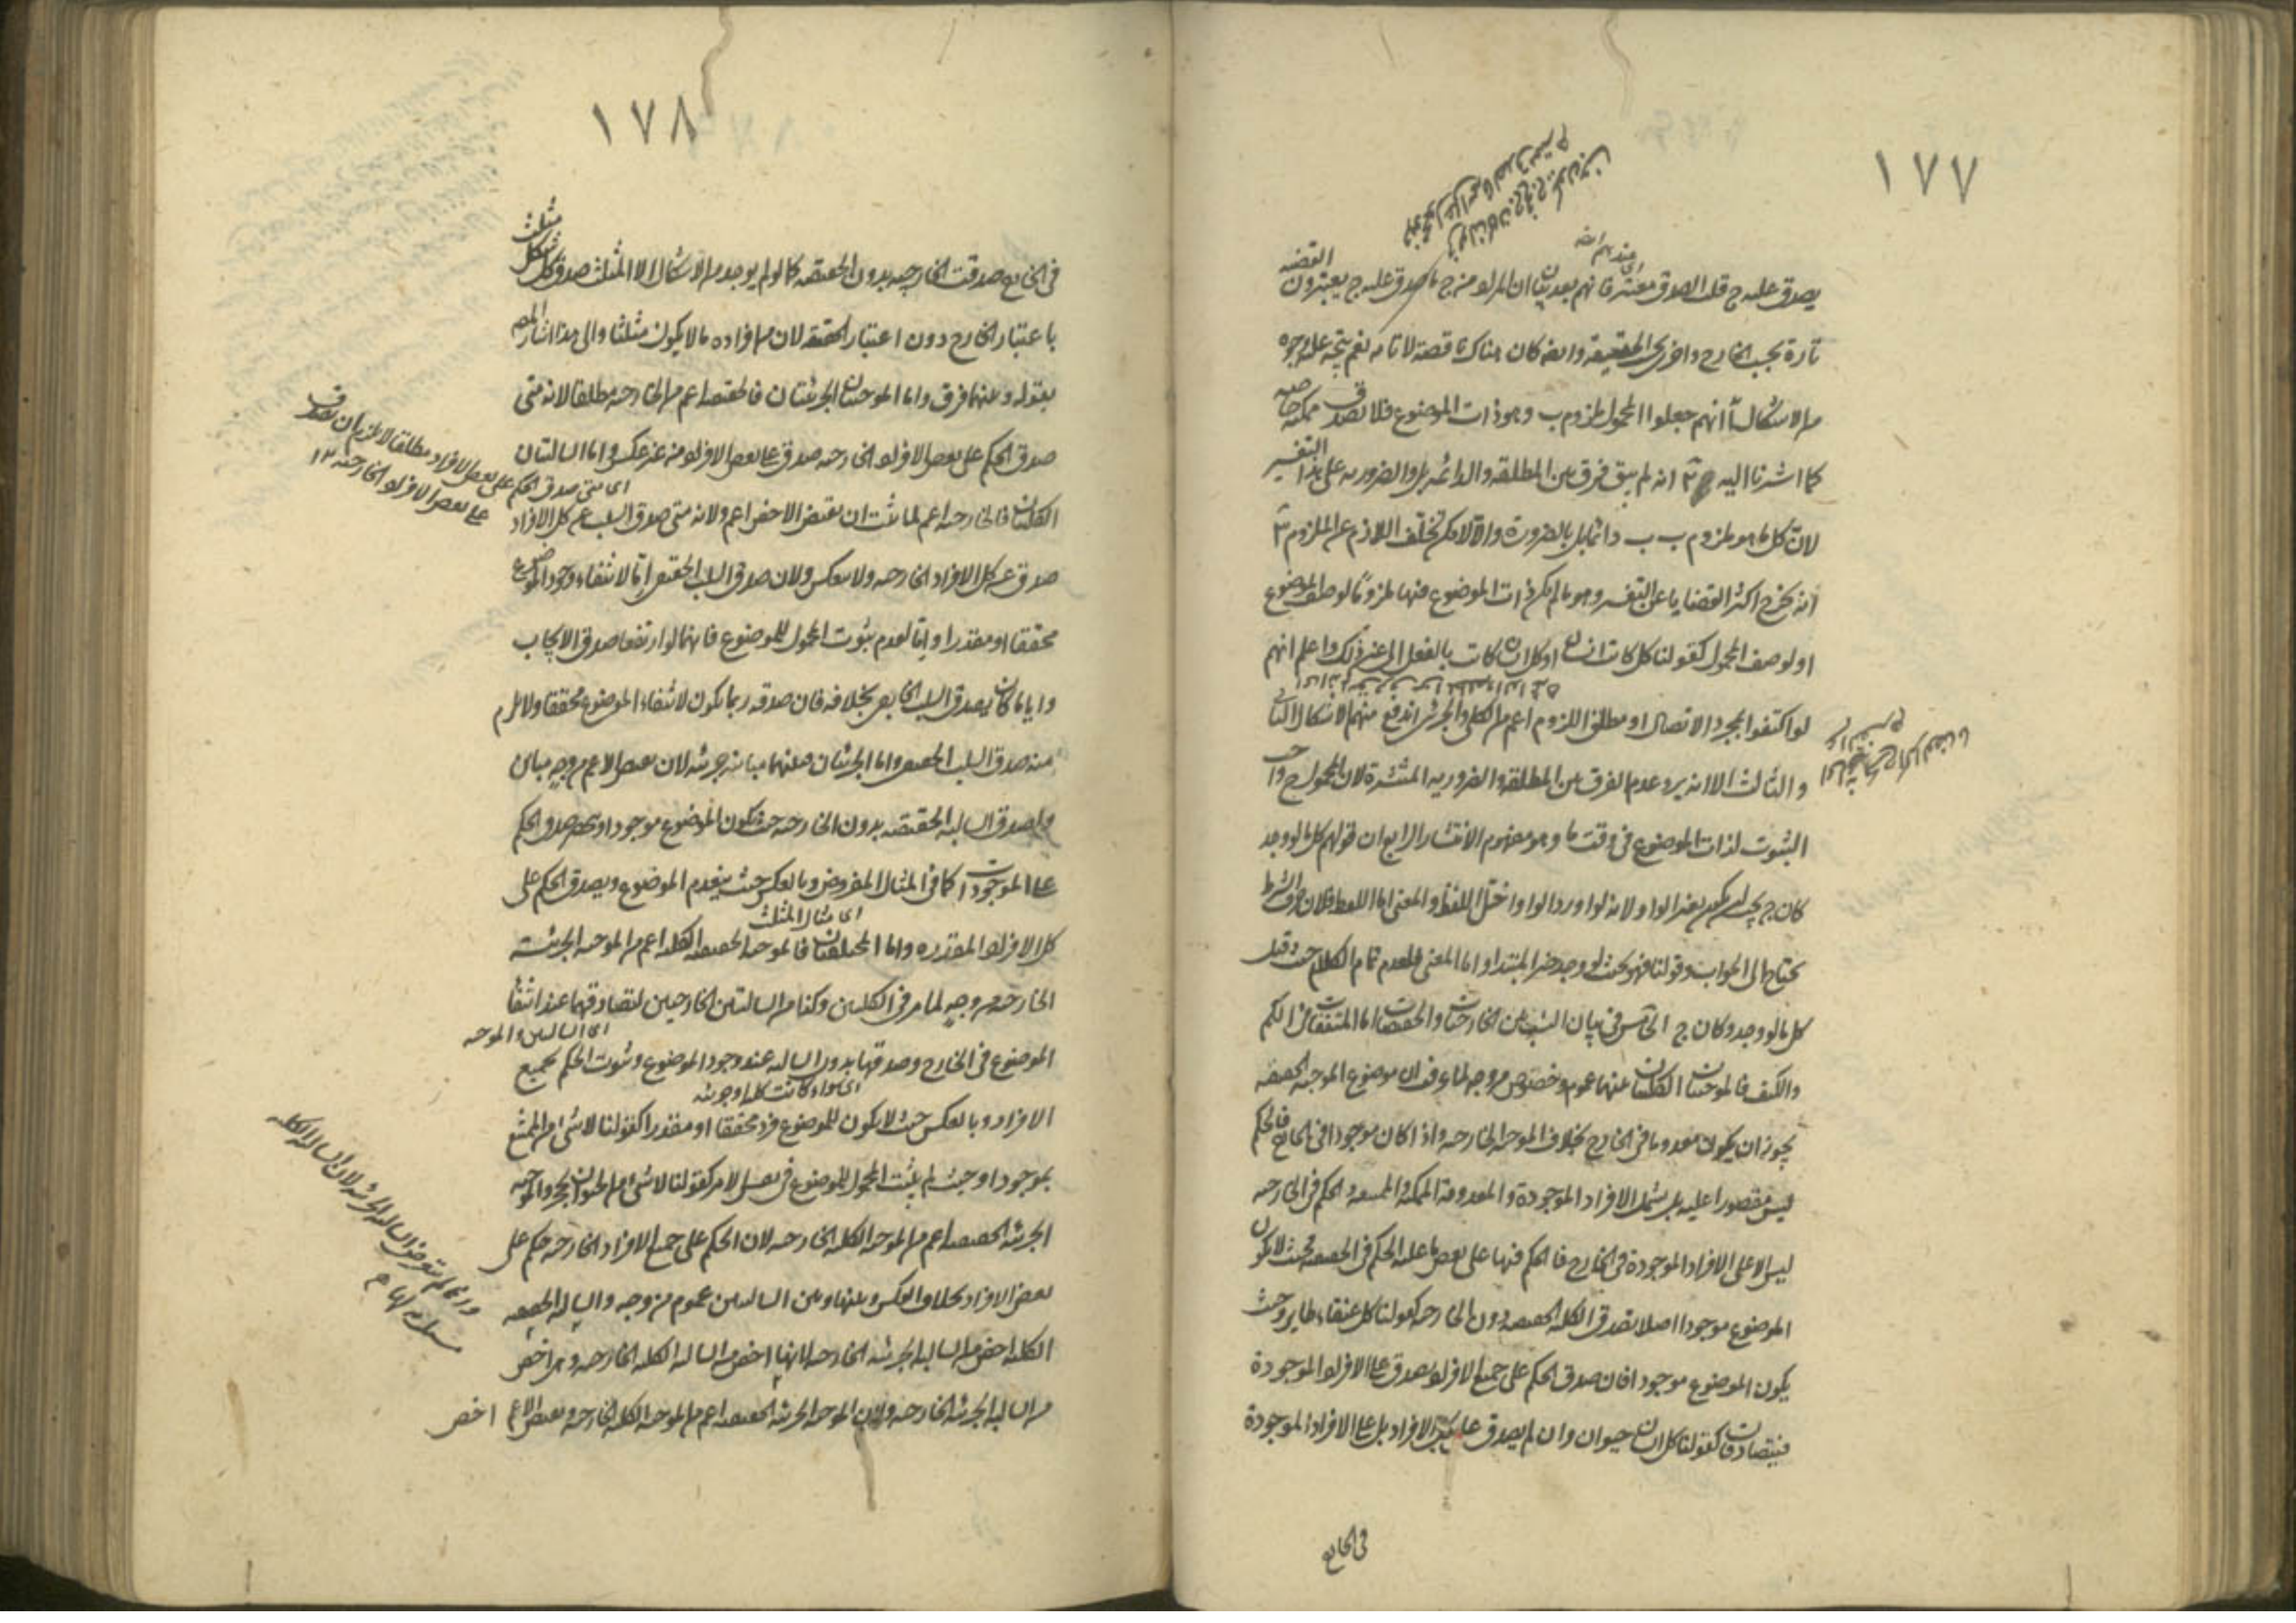 ١٧٧
القضية
يصدق عليه ج قلت الصدق معتبر فانهم بعد بيان ان المراد من ج ما صدق عليه ج يعتبرون
تارة بحسب الخارج واخرى بحسب الحقيقة وايضا كان هناك ناقصة لا تامة نعم يتجه عليه وجوه
من الاشكال آ انهم جعلوا المحمول ملزوم ب وهو ذات الموضوع فلا تصدق ممكنة خاصة
كما اشرنا اليه انه لم يبق فرق بين المطلقة والدائمة بل والضرورية على هذا التفسير
لان كل ما هو ملزوم ب ب دائما بل بالضرورة والا لامكن تخلف اللازم عن الملزوم
انه يخرج اكثر القضايا عن التفسير وهو ما لم يكن ذات الموضوع فيها ملزوما لوصف الموضوع
او لوصف المحمول كقولنا كل كاتب انسان او كل انسان كاتب بالفعل الى غير ذلك واعلم انهم
لو اكتفوا بمجرد الاتصال او مطلق اللزوم اعم من الكلي والجزئي اندفع منهم الاشكال الثاني
والثالث الا انه يرد عدم الفرق بين المطلقة والضرورية المنتشرة لان المحمول ح واجب
الثبوت لذات الموضوع في وقت ما وهو مفهوم الانتشار الرابع ان قولهم كل ما لو وجد
كان ج يجب ان يكون بغير الواو لانه لو اورد الواو اختل اللفظ والمعنى اما اللفظ فلان حرف الشرط
يحتاج الى الجواب وقولنا فهو بحيث لو وجد خبر المبتدا واما المعنى فلعدم تمام الكلام حيث قيل
كل ما لو وجد وكان ج الخامس في بيان النسب بين الخارجيات والحقيقيات اما المتفقتان في الكم
والكيف فالموجبتان الكليتان بينهما عموم وخصوص من وجه لما عرف ان موضوع الموجبة الحقيقية
يجوز ان يكون معدوما في الخارج بخلاف الموجبة الخارجية واذا كان موجودا في الخارج فالحكم
ليس مقصورا عليه بل يشمل الافراد الموجودة والمعدومة الممكنة والممتنعة والحكم في الخارجية
ليس الا على الافراد الموجودة في الخارج فالحكم فيها على بعض ما عليه الحكم في الحقيقية فحيث لا يكون
الموضوع موجودا اصلا تصدق الكلية الحقيقية دون الخارجية كقولنا كل عنقاء طاير وحيث
يكون الموضوع موجودا فان صدق الحكم على جميع الافراد يصدق على الافراد الموجودة
فيتصادقان كقولنا كل انسان حيوان وان لم يصدق على جميع الافراد بل على الافراد الموجودة
في الخارج
١٧٨
في الخارج صدقت الخارجية بدون الحقيقية كما لو لم يوجد من الاشكال الا المثلث صدق كل شكل مثلث
باعتبار الخارج دون اعتبار الحقيقة لان من افراده ما لا يكون مثلثا والى هذا اشار المصـ
بقوله وبينهما فرق واما الموجبتان الجزئيتان فالحقيقية اعم من الخارجية مطلقا لانه متى
صدق الحكم على بعض الافراد الخارجية صدق على بعض الافراد من غير عكس واما السالبتان
الكليتان فالخارجية اعم لما ثبت ان نقيض الاخص اعم ولانه متى صدق السلب عن كل الافراد
صدق عن كل الافراد الخارجية ولا ينعكس ولان صدق السلب الحقيقي اما لانتفاء وجود الموضوع
محققا او مقدرا واما لعدم ثبوت المحمول للموضوع فانهما لو ارتفعا صدق الايجاب
وايا ما كان يصدق السلب الخارجي بخلافه فان صدقه ربما يكون لانتفاء الموضوع محققا ولا يلزم
منه صدق السلب الحقيقي واما الجزئيتان فبينهما مباينة جزئية لان نقيضي الاعم من وجه
صدق السالبة الحقيقية بدون الخارجية حيث يكون الموضوع موجودا صدق الحكم
على الموجودات كما في المثال المفروض وبالعكس حيث ينعدم الموضوع ويصدق الحكم على
اى مثال المثلث
كل الافراد المقدرة واما المختلفتان فالموجبة الحقيقية الكلية اعم من الموجبة الجزئية
الخارجية من وجه لما مر في الكليتين وكذا من السالبتين الخارجيتين لتصادقهما عند انتفا
اى السالبتين والموجبة
الموضوع في الخارج وصدقها بدون السالبة عند وجود الموضوع وثبوت الحكم لجميع
اى سواء كانت كلية او جزئية
الافراد وبالعكس حيث لا يكون للموضوع فرد محققا او مقدرا كقولنا لا شئ من الممتنع
بموجود او حيث لم يثبت المحمول للموضوع في نفس الامر كقولنا لا شئ من الحيوان بحجر والموجبة
الجزئية الحقيقية اعم من الموجبة الكلية الخارجية لان الحكم على جميع الافراد الخارجية حكم على
بعض الافراد بخلاف العكس وبينها وبين السالبتين عموم من وجه والسالبة الحقيقية
الكلية اخص من السالبة الجزئية الخارجية لانها اخص من السالبة الكلية الخارجية وهى اخص
من السالبة الجزئية الخارجية ولان الموجبة الجزئية الحقيقية اعم من الموجبة الكلية الخارجية ونقيض الاعم اخص
اى متى صدق الحكم على بعض الافراد مطلقا لا يلزم ان يصدق
على بعض الافراد الخارجية ١٢